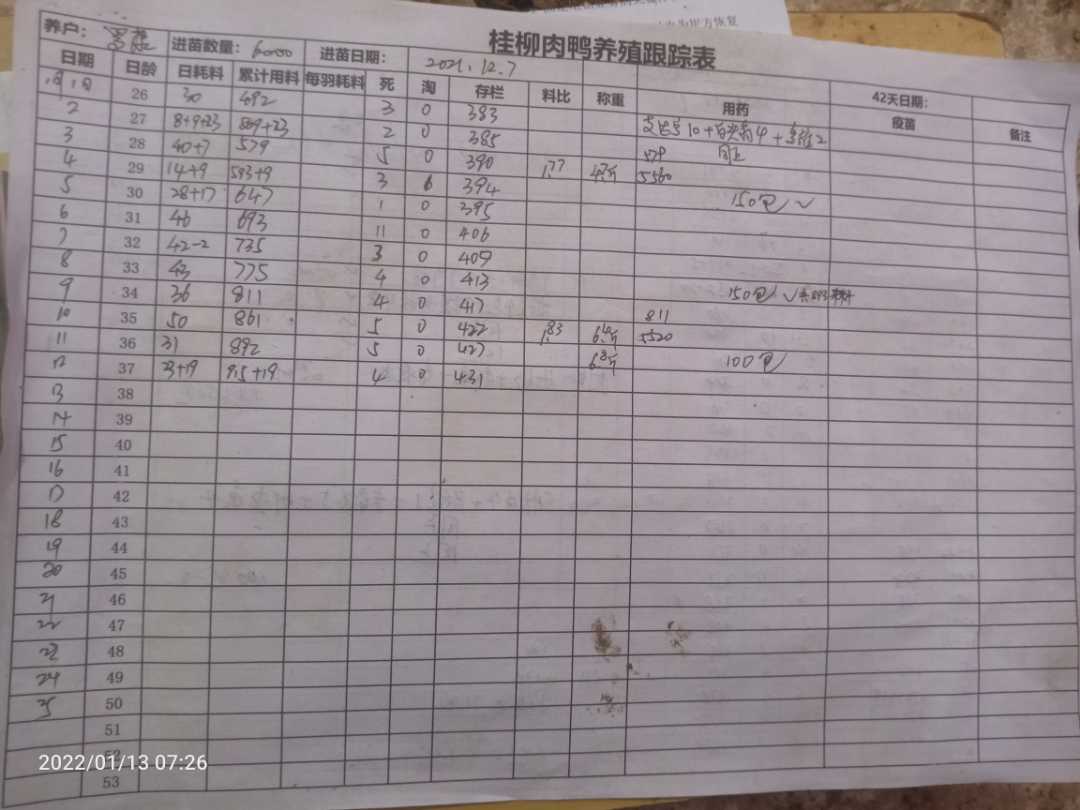 桂柳肉鸭养殖跟踪表
养户: 进苗数量: 6000 进苗日期: 2021.12.7 42天日期:
日期 日龄 日耗料 累计用料 每羽耗料 死 淘 存栏 料比 称重 用药 疫苗 备注
1月1日 26 30 492 3 0 383
2 27 8+9+23 +23 2 0 385 同上
3 28 40+7 579 5 0 390 1.77 579 5560
4 29 14+9 593+9 3 0 394
5 30 28+17 647 1 0 395 150包 ✓
6 31 46 693 11 0 406
7 32 42-2 735 3 0 409
8 33 43 775 4 0 413
9 34 36 811 4 0 417 150包 ✓
10 35 50 861 5 0 422 1.83 811 5520
11 36 31 892 5 0 427 100包
12 37 23+19 915+19 4 0 431
13 38
14 39
15 40
16 41
17 42
18 43
19 44
20 45
21 46
22 47
23 48
24 49
25 50
51
52
53
2022/01/13 07:26